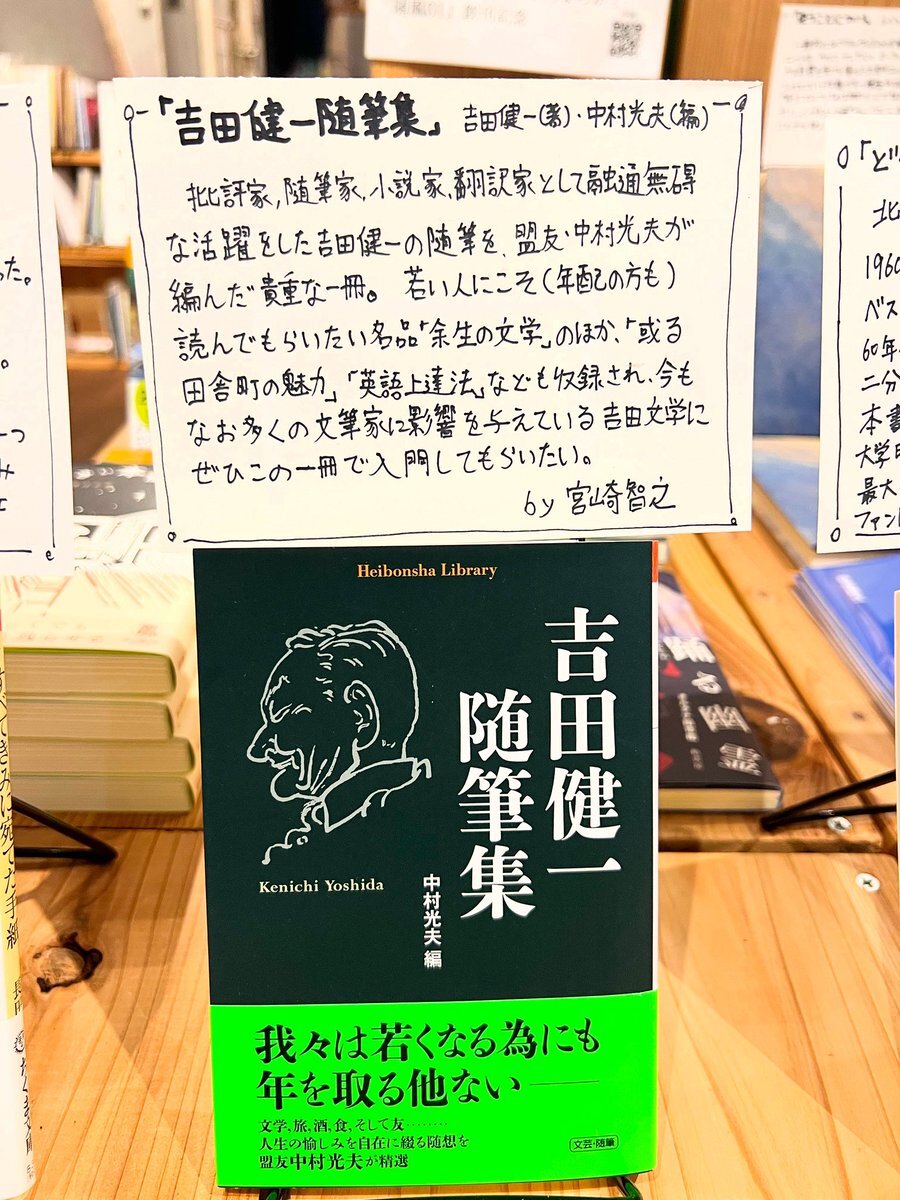 「吉田健一随筆集」 吉田健一(著)・中村光夫(編)
批評家,随筆家,小説家,翻訳家として融通無碍
な活躍をした吉田健一の随筆を、盟友・中村光夫が
編んだ貴重な一冊。若い人にこそ(年配の方も)
読んでもらいたい名品「余生の文学」のほか、「或る
田舎町の魅力」「英語上達法」なども収録され、今も
なお多くの文筆家に影響を与えている吉田文学に
ぜひこの一冊で入門してもらいたい。
by 宮崎智之
Heibonsha Library
吉田健一
随筆集
Kenichi Yoshida
中村光夫 編
我々は若くなる為にも
年を取る他ない――
文学,旅,酒,食,そして友………
人生の愉しみを自在に綴る随想を
盟友中村光夫が精選
文芸・随筆
すべてきみに宛てた手紙
長田
った。
。
一つ
み
「ど
北
1960
ベス
60年
二分
本書
大学
最大
ファン